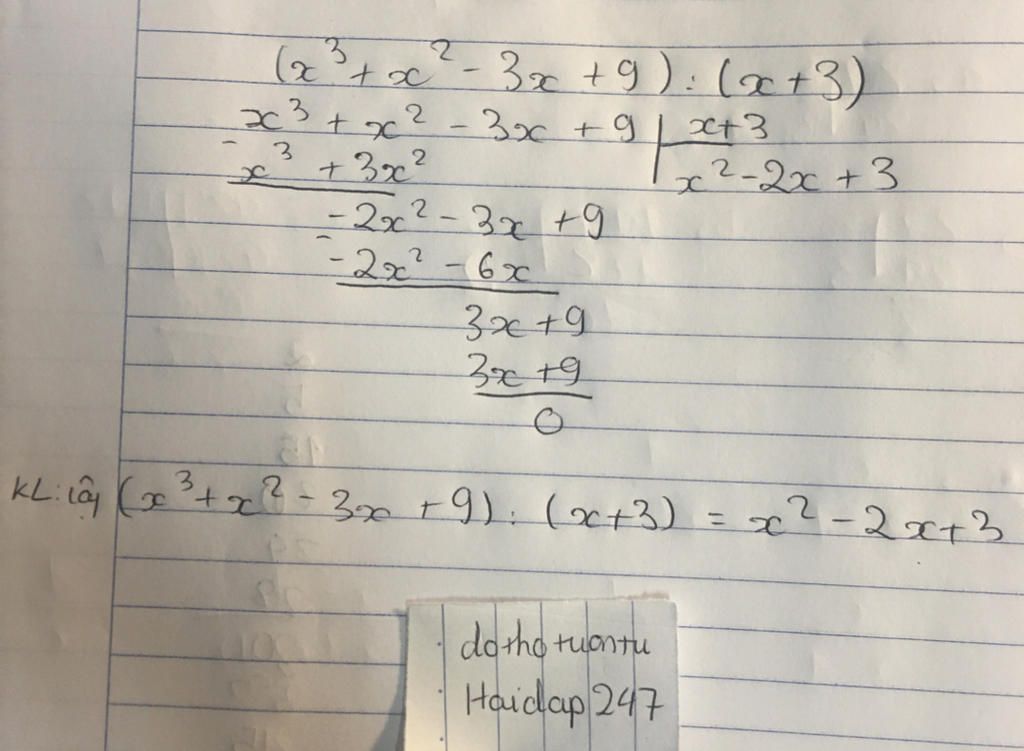 (x³ + x² - 3x + 9) : (x + 3)
x³ + x² - 3x + 9 | x+3
- x³ + 3x² x² - 2x + 3
-2x² - 3x + 9
- -2x² - 6x
3x + 9
3x + 9
0
KL: (x³ + x² - 3x + 9) : (x+3) = x² - 2x + 3
dothotuontu
Hoidap247